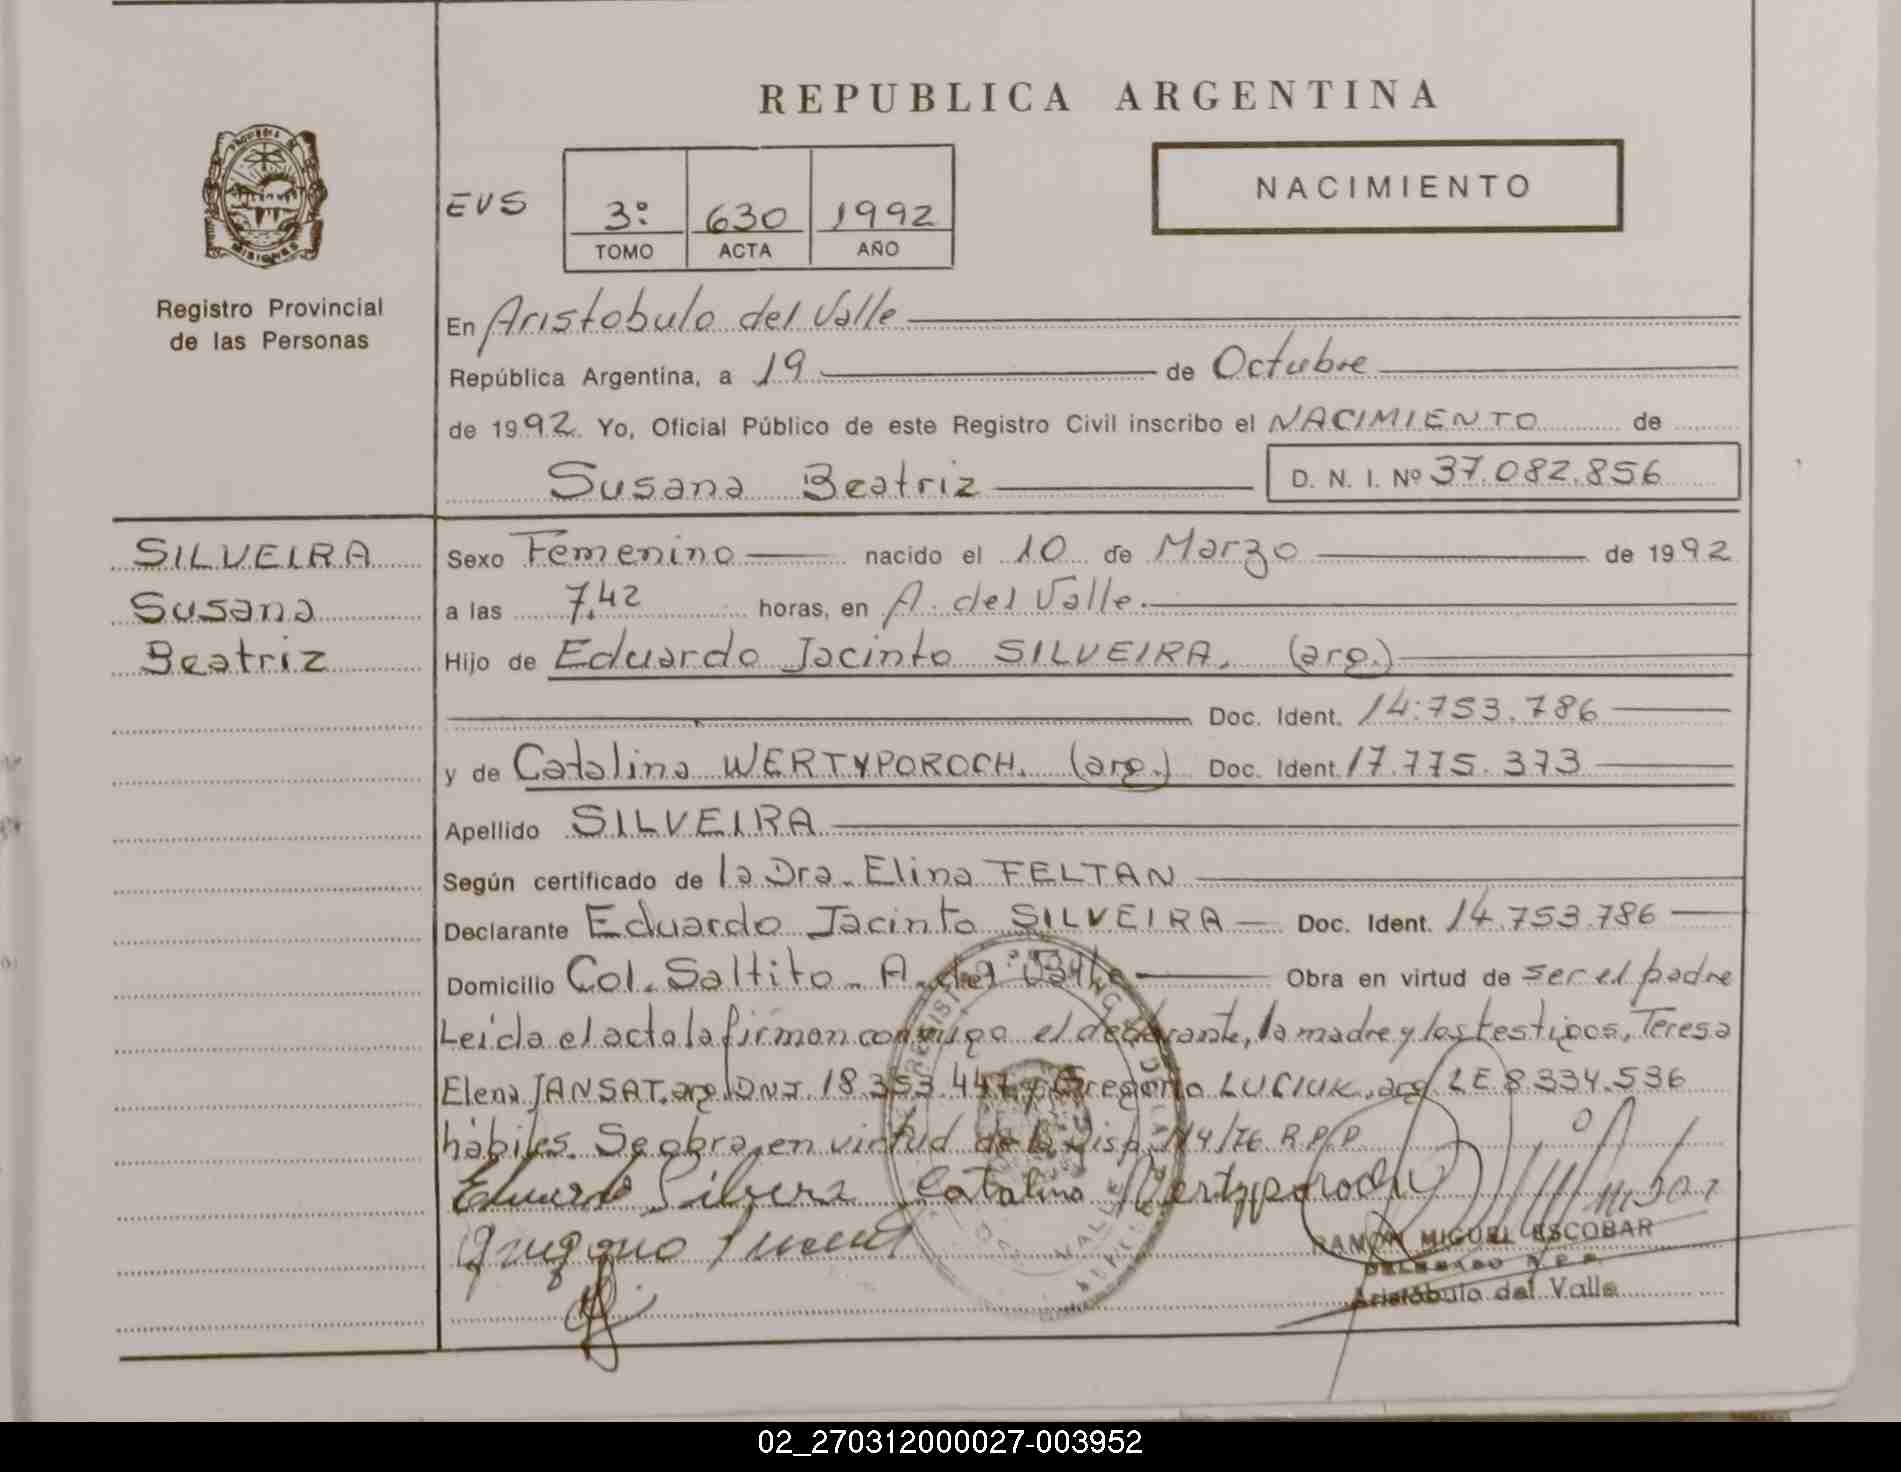 REPUBLICA ARGENTINA
NACIMIENTO
EVS
3º 630 1992
TOMO ACTA AÑO
PROVINCIA DE
MISIONES
Registro Provincial
de las Personas
En Aristobulo del Valle
República Argentina, a 19 de Octubre
de 1992. Yo, Oficial Público de este Registro Civil inscribo el NACIMIENTO de
Susana Beatriz D. N. I. Nº 37.082.856
SILVEIRA
Susana
Beatriz
Sexo Femenino nacido el 10 de Marzo de 1992
a las 7.42 horas, en A. del Valle.
Hijo de Eduardo Jacinto SILVEIRA. (arg.)
Doc. Ident. 14.753.786
y de Catalina WERTYPOROCH. (arg.) Doc. Ident. 17.775.373
Apellido SILVEIRA
Según certificado de la Dra. Elina FELTAN
Declarante Eduardo Jacinto SILVEIRA Doc. Ident. 14.753.786
Domicilio Col. Saltito - A. del Valle Obra en virtud de ser el padre
Leida el acta la firman conmigo el declarante, la madre y los testigos, Teresa
Elena JANSAT. arg. DNI. 18.353.447 y Gregorio LUCIUK, arg. LE 8.334.536
hábiles. Se obra en virtud de la Disp. Nº 4/76. R.P.P.
Eduardo Silveira Catalina Wertyporoch
RAMON MIGUEL ESCOBAR
DELEGADO R.P.P.
Aristóbulo del Valle
02_270312000027-003952